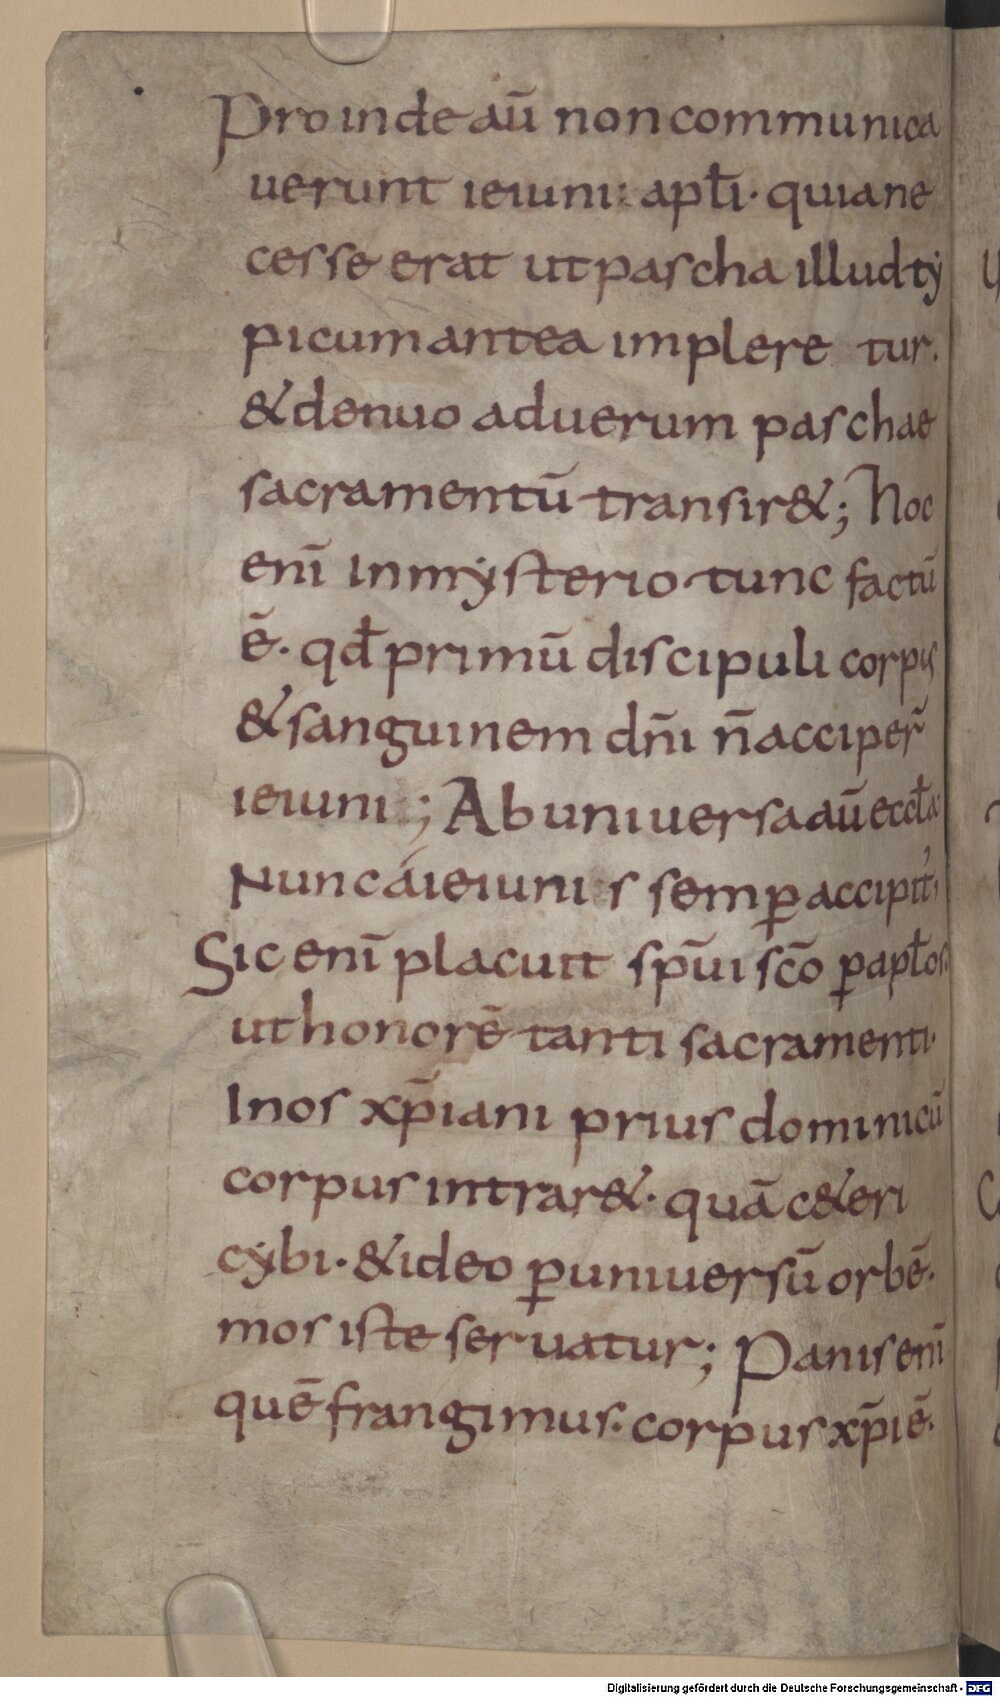 Proinde aū non communica
uerunt ieiuni: apłi· quia ne
cesse erat ut pascha illud tẏ
picum antea implere tur.
& denuo ad uerum paschae
sacramentū transir&; Hoc
enī in mẏsterio tunc factū
ē· qđ primū discipuli corpus
& sanguinem dn̄i n̄ acciper̄
ieiuni; Ab uniuersa aū eccła
Nunc a ieiunis semꝑ accipit̄,
Sic enī placuit sp̄ui sc̄o ꝑ apłos.
ut honorē tanti sacramenti·
In os xp̄iani prius dominicū
corpus intrar&· quā c&eri
cẏbi· & ideo ꝑ uniuersū orbē·
mos iste seruatur; Panis enī
quē frangimus· corpus xp̄i ē·
Digitalisierung gefördert durch die Deutsche Forschungsgemeinschaft - DFG